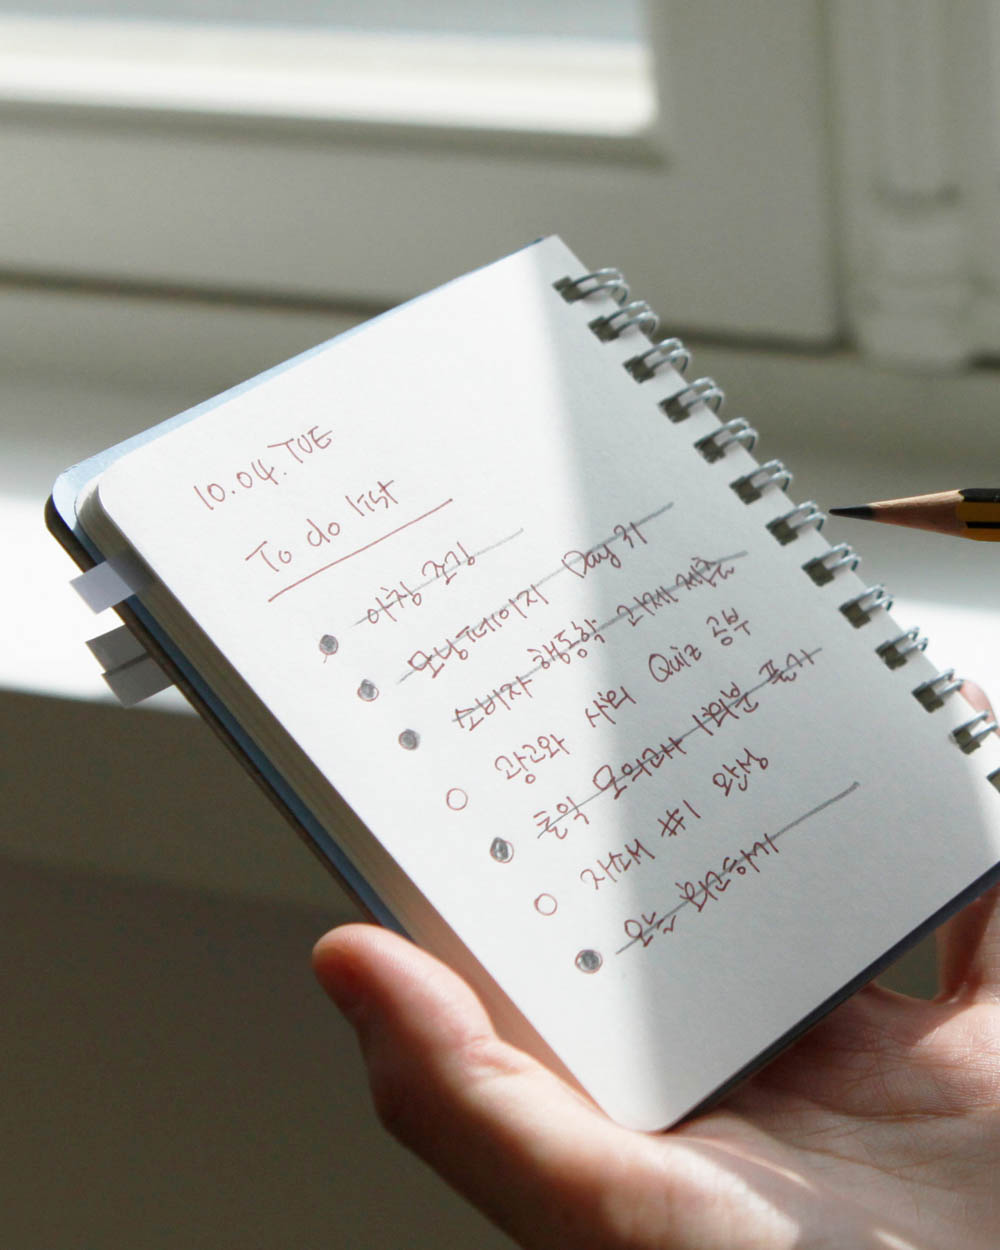 10.04.TUE
To do list
아침 조깅
모닝페이지 Day 31
소비자 행동학 과제 제출
광고와 사회 Quiz 공부
토익 모의고사 1회분 풀기
자소서 #1 완성
오늘 회고하기